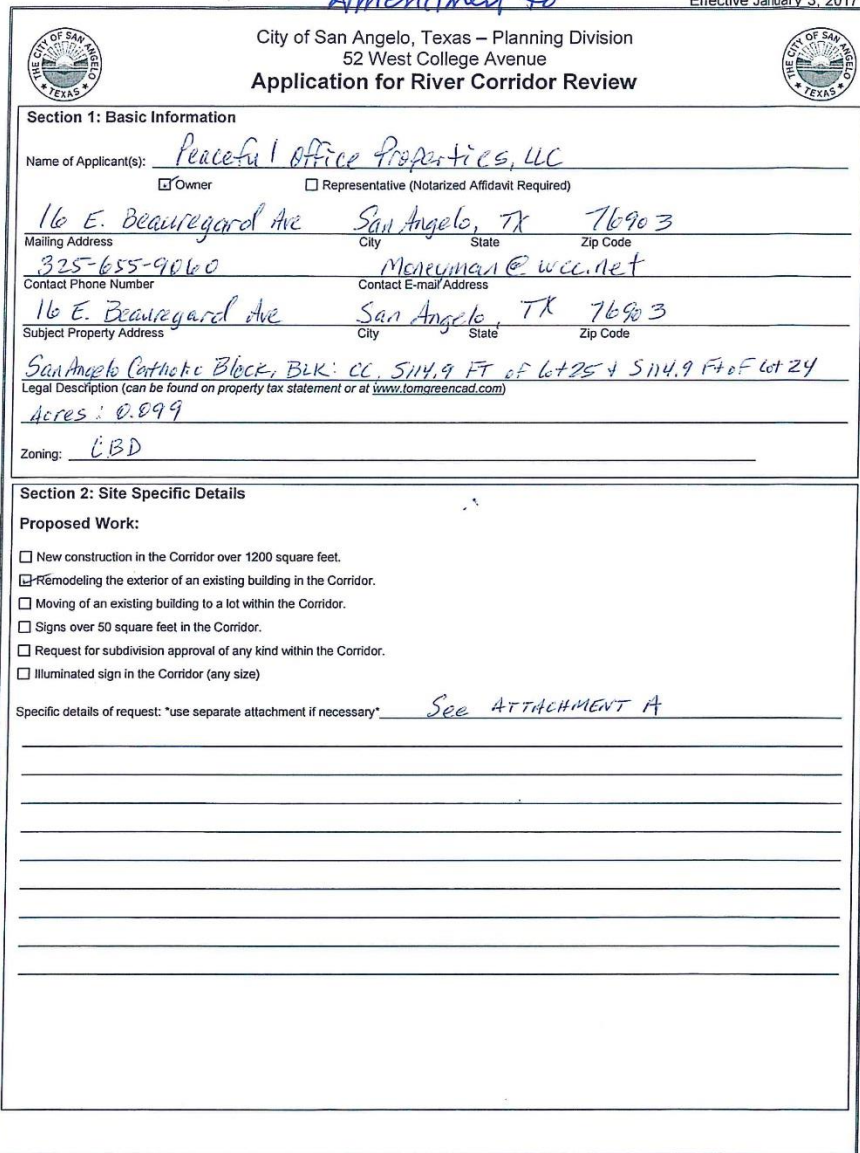 Amendment to
Effective January 3, 2017
THE CITY OF SAN ANGELO TEXAS
City of San Angelo, Texas – Planning Division
THE CITY OF SAN ANGELO TEXAS
52 West College Avenue
Application for River Corridor Review
Section 1: Basic Information
Name of Applicant(s): Peaceful Office Properties, LLC
Owner Representative (Notarized Affidavit Required)
16 E. Beauregard Ave San Angelo, TX 76903
Mailing Address City State Zip Code
325-655-9060 Moneyman@wcc.net
Contact Phone Number Contact E-mail Address
16 E. Beauregard Ave San Angelo, TX 76903
Subject Property Address City State Zip Code
San Angelo Catholic Block, BLK: CC, S114.9 FT of Lot 25 & S114.9 Ft of Lot 24
Legal Description (can be found on property tax statement or at www.tomgreencad.com)
Acres: 0.099
Zoning: CBD
Section 2: Site Specific Details
Proposed Work:
New construction in the Corridor over 1200 square feet.
Remodeling the exterior of an existing building in the Corridor.
Moving of an existing building to a lot within the Corridor.
Signs over 50 square feet in the Corridor.
Request for subdivision approval of any kind within the Corridor.
Illuminated sign in the Corridor (any size)
Specific details of request: *use separate attachment if necessary* See ATTACHMENT A